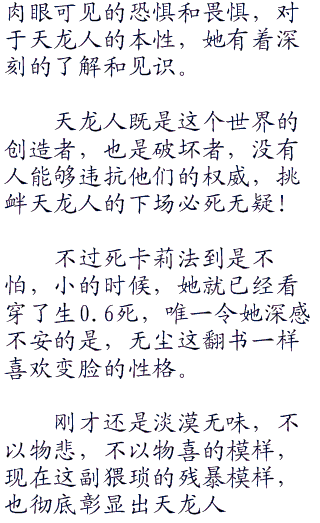 肉眼可见的恐惧和畏惧，对
于天龙人的本性，她有着深
刻的了解和见识。
天龙人既是这个世界的
创造者，也是破坏者，没有
人能够违抗他们的权威，挑
衅天龙人的下场必死无疑！
不过死卡莉法到是不
怕，小的时候，她就已经看
穿了生0.6死，唯一令她深感
不安的是，无尘这翻书一样
喜欢变脸的性格。
刚才还是淡漠无味，不
以物悲，不以物喜的模样，
现在这副猥琐的残暴模样，
也彻底彰显出天龙人